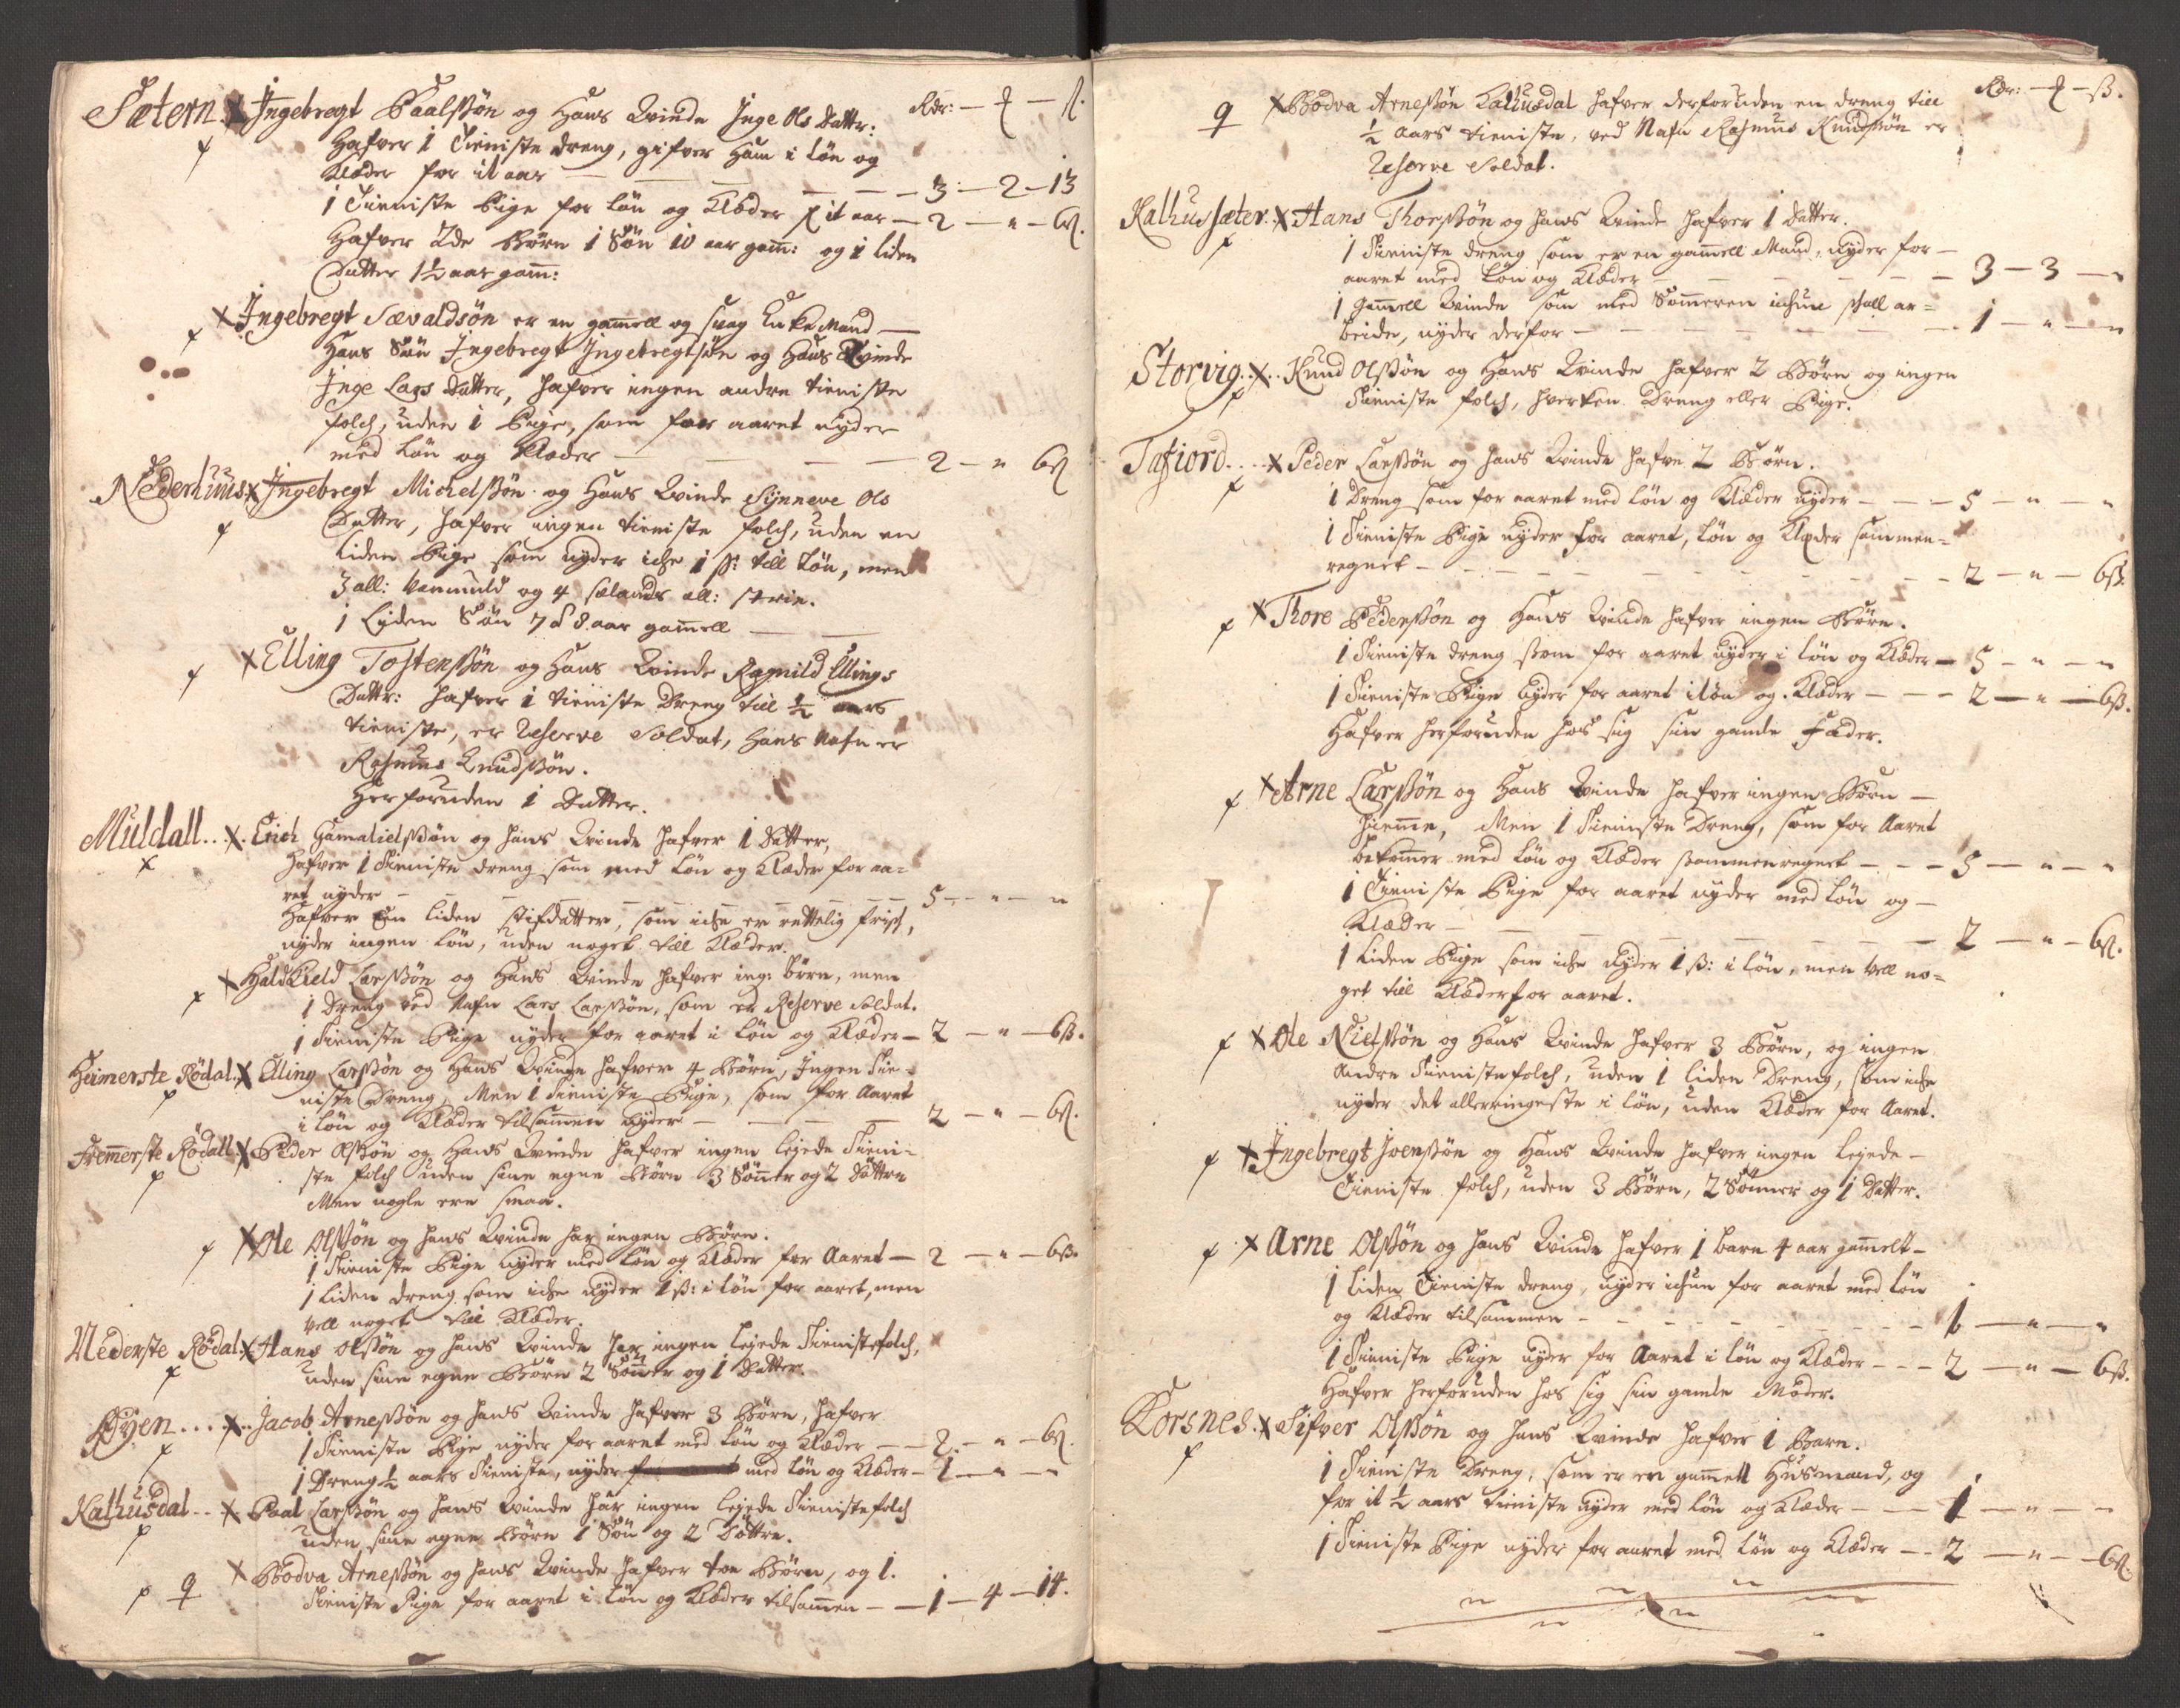 Rdr: — ₰ — ß.
Sætern. X Ingebregt Paalssøn og Hans Qvinde Inge Ols Dattr:
Hafver 1 Tieniste dreng, gifver Ham i løn og
Klæder for it aar — 3 — 2 — 13
1 Tieniste Pige for løn og Klæder p it aar — 2 — " — 6ß.
Hafver 2de Børn 1 Søn 10 aar gam̄: og 1 liden
Datter 1½ aar gam̄:
X Ingebregt Sævaldsøn er en gam̄ell og svag Enke Mand —
Hans Søn Ingebregt Ingebregtsøn og Hans Qvinde
Inge Lars Datter, hafver ingen andre tieniste
folch, uden 1 Pige, som for aaret nyder
med Løn og Klæder — 2 — " 6ß
Nederhuus X Ingebregt Michelssøn og Hans Qvinde Synneve Ols
Datter, hafver ingen tieniste folch, uden en
liden Pige som nyder iche 1 ß: till Løn, men
3 all: Vanmuld og 4 sælands all: strie.
1 Liden Søn 7 à 8 aar gam̄ell —
X Elling Tostenssøn og Hans Qvinde Ragnild Ellings
Dattr: hafver 1 tieniste Dreng till ½ aars
tieniste, er Reserve Soldat, Hans Nafn er
Rasmus Knudssøn.
Herforuden 1 Datter.
Muldall... X. Erich Gamalielssøn og hans Qvinde hafver 1 Datter,
Hafver 1 Tieniste dreng som med løn og Klæder for aa=
ret nyder — 5 — " — "
Hafver Een liden stifdatter, som iche er rettelig frisch,
nyder ingen løn, uden noget till Klæder.
X Haldkield Larssøn og Hans Qvinde hafver ing: børn, men
1 Dreng ved Nafn Lars Larssøn, som er Reserve Soldat.
1 Tieniste Pige nyder for aaret i løn og Klæder — 2 — " — 6ß.
Heimerste Rødal. X Elling Larssøn og Hans Qvinde hafver 4 Børn, Ingen Tie=
niste Dreng, Men 1 Tieniste Pige, som for Aaret
i løn og Klæder tilsam̄en nyder — 2 — " — 6ß.
Frem̄erste Rødall X Peder Olssøn og Hans Qvinde hafver ingen lejede Tieni=
ste folch uden sine egne Børn 3 Søn̄er og 2 Døttre
Men nogle ere smaa.
X Ole Olssøn og hans Qvinde har ingen Børn.
1 Tieniste Pige nyder med løn og Klæder for Aaret — 2 — " — 6ß.
1 liden dreng som iche nyder 1 ß: i løn for aaret, men
vell noget till Klæder.
Nederste Rødal X Hans Olssøn og hans Qvinde har ingen lejede Tienistefolch,
uden sine egne Børn 2 Søn̄er og 1 Datter.
Øyen.... X.. Jacob Arnessøn og hans Qvinde hafver 3 Børn, hafver
1 Tieniste Pige nyder for aaret med løn og Klæder — 2 — " — 6ß.
1 Dreng ½ aars Tieniste, nyder med løn og Klæder — 1 — " — "
Kalhusdal.. X. Paal Larssøn og hans Qvinde har ingen lejede Tienistefolch
uden sine egne Børn 1 Søn og 2 Døttre.
X Bodva Arnessøn og hans Qvinde hafver tre Børn, og 1.
Tieniste Pige for aaret i løn og Klæder tilsam̄en — 1 — 4 — 14.
Rdr: — ₰ — ß.
X Bodva Arnessøn Kalhusdal hafver derforuden en dreng till
½ aars tieniste, ved Nafn Rasmus Knudssøn er
Reserve Soldat.
Kalhussæter. X Hans Thorssøn og hans Qvinde hafver 1 Datter.
1 Tieniste dreng som er en gam̄ell Mand, nyder for —
aaret med Løn og Klæder — 3 — 3 — "
1 gam̄ell Qvinde som med Som̄eren ichun schall ar=
beide, nyder derfor — 1 — " — "
Storvig.. X.. Knud Olssøn og Hans Qvinde hafver 2 Børn og ingen
Tieniste folch, hverken Dreng eller Pige.
Tafiord.... X Peder Larssøn og hans Qvinde hafve 2 Børn.
1 Dreng som for aaret med løn og Klæder nyder — 5 — " — "
1 Tieniste Pige nyder for aaret, løn og Klæder sammen=
regnet — 2 — " — 6ß.
X Thore Pederssøn og Hans Qvinde hafver ingen Børn.
1 Tieniste dreng som for aaret nyder i løn og Klæder — 5 — " — "
1 Tieniste Pige nyder for aaret i løn og Klæder — 2 — " — 6ß.
Hafver herforuden hos sig sin gamle Fader.
X Arne Larssøn og Hans Qvinde hafver ingen Børn —
hiem̄e, Men 1 Tieniste Dreng, som for Aaret
bekom̄er med løn og Klæder sammenregnet — 5 — " — "
1 Tieniste Pige for aaret nyder med løn og —
Klæder — 2 — " — 6ß.
1 liden Pige som iche nyder 1 ß: i løn, men vell no=
get till Klæder for aaret.
X Ole Nielssøn og Hans Qvinde hafver 3 Børn, og ingen
andre Tienistefolch, uden 1 liden Dreng, som iche
nyder det allerringeste i løn, uden Klæder for Aaret.
X Ingebregt Joenssøn og Hans Qvinde hafver ingen lejede —
Tieniste folch, uden 3 Børn, 2 Sønner og 1 Datter.
X Arne Olssøn og hans Qvinde hafver 1 barn 4 aar gam̄elt —
1 liden Tieniste dreng, nyder ichun for aaret med løn
og Klæder tilsammen — 1 — " — "
1 Tieniste Pige nyder for Aaret i løn og Klæder — 2 — " — 6ß.
Hafver herforuden hos sig sin gamle Moder.
Korsnes. X Sifver Olssøn og hans Qvinde hafver 1 Barn.
1 Tieniste Dreng, som er en gam̄ell Husmand, og
for it ½ aars tieniste nyder med løn og Klæder — 1 — " — "
1 Tieniste Pige nyder for aaret med løn og Klæder — 2 — " — 6ß.